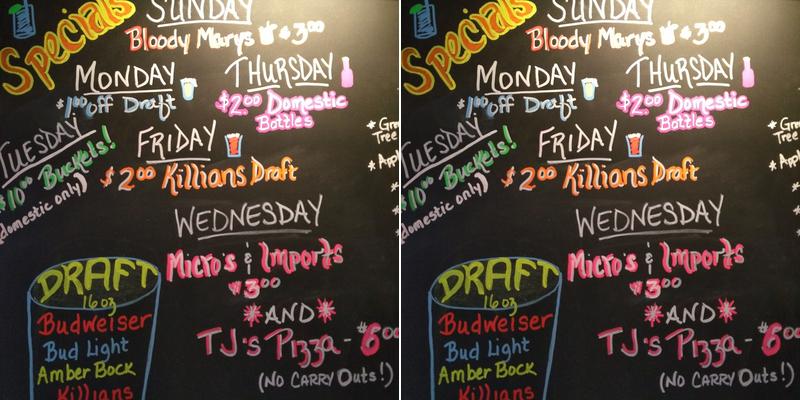 Specials
SUNDAY
Bloody Marys $3.00
MONDAY
$1.00 off Draft
THURSDAY
$2.00 Domestic
Bottles
TUESDAY
$10.00 Buckets!
(domestic only)
FRIDAY
$2.00 Killians Draft
WEDNESDAY
Micro's & Imports
$3.00
*AND*
TJ's Pizza - $6.00
(No Carry Outs!)
DRAFT
16oz
Budweiser
Bud Light
Amber Bock
Killians
* 
Tree
*
Specials
SUNDAY
Bloody Marys $3.00
MONDAY
$1.00 off Draft
THURSDAY
$2.00 Domestic
Bottles
TUESDAY
$10.00 Buckets!
(domestic only)
FRIDAY
$2.00 Killians Draft
WEDNESDAY
Micro's & Imports
$3.00
*AND*
TJ's Pizza - $6.00
(No Carry Outs!)
DRAFT
16oz
Budweiser
Bud Light
Amber Bock
Killians
*
Tree
*